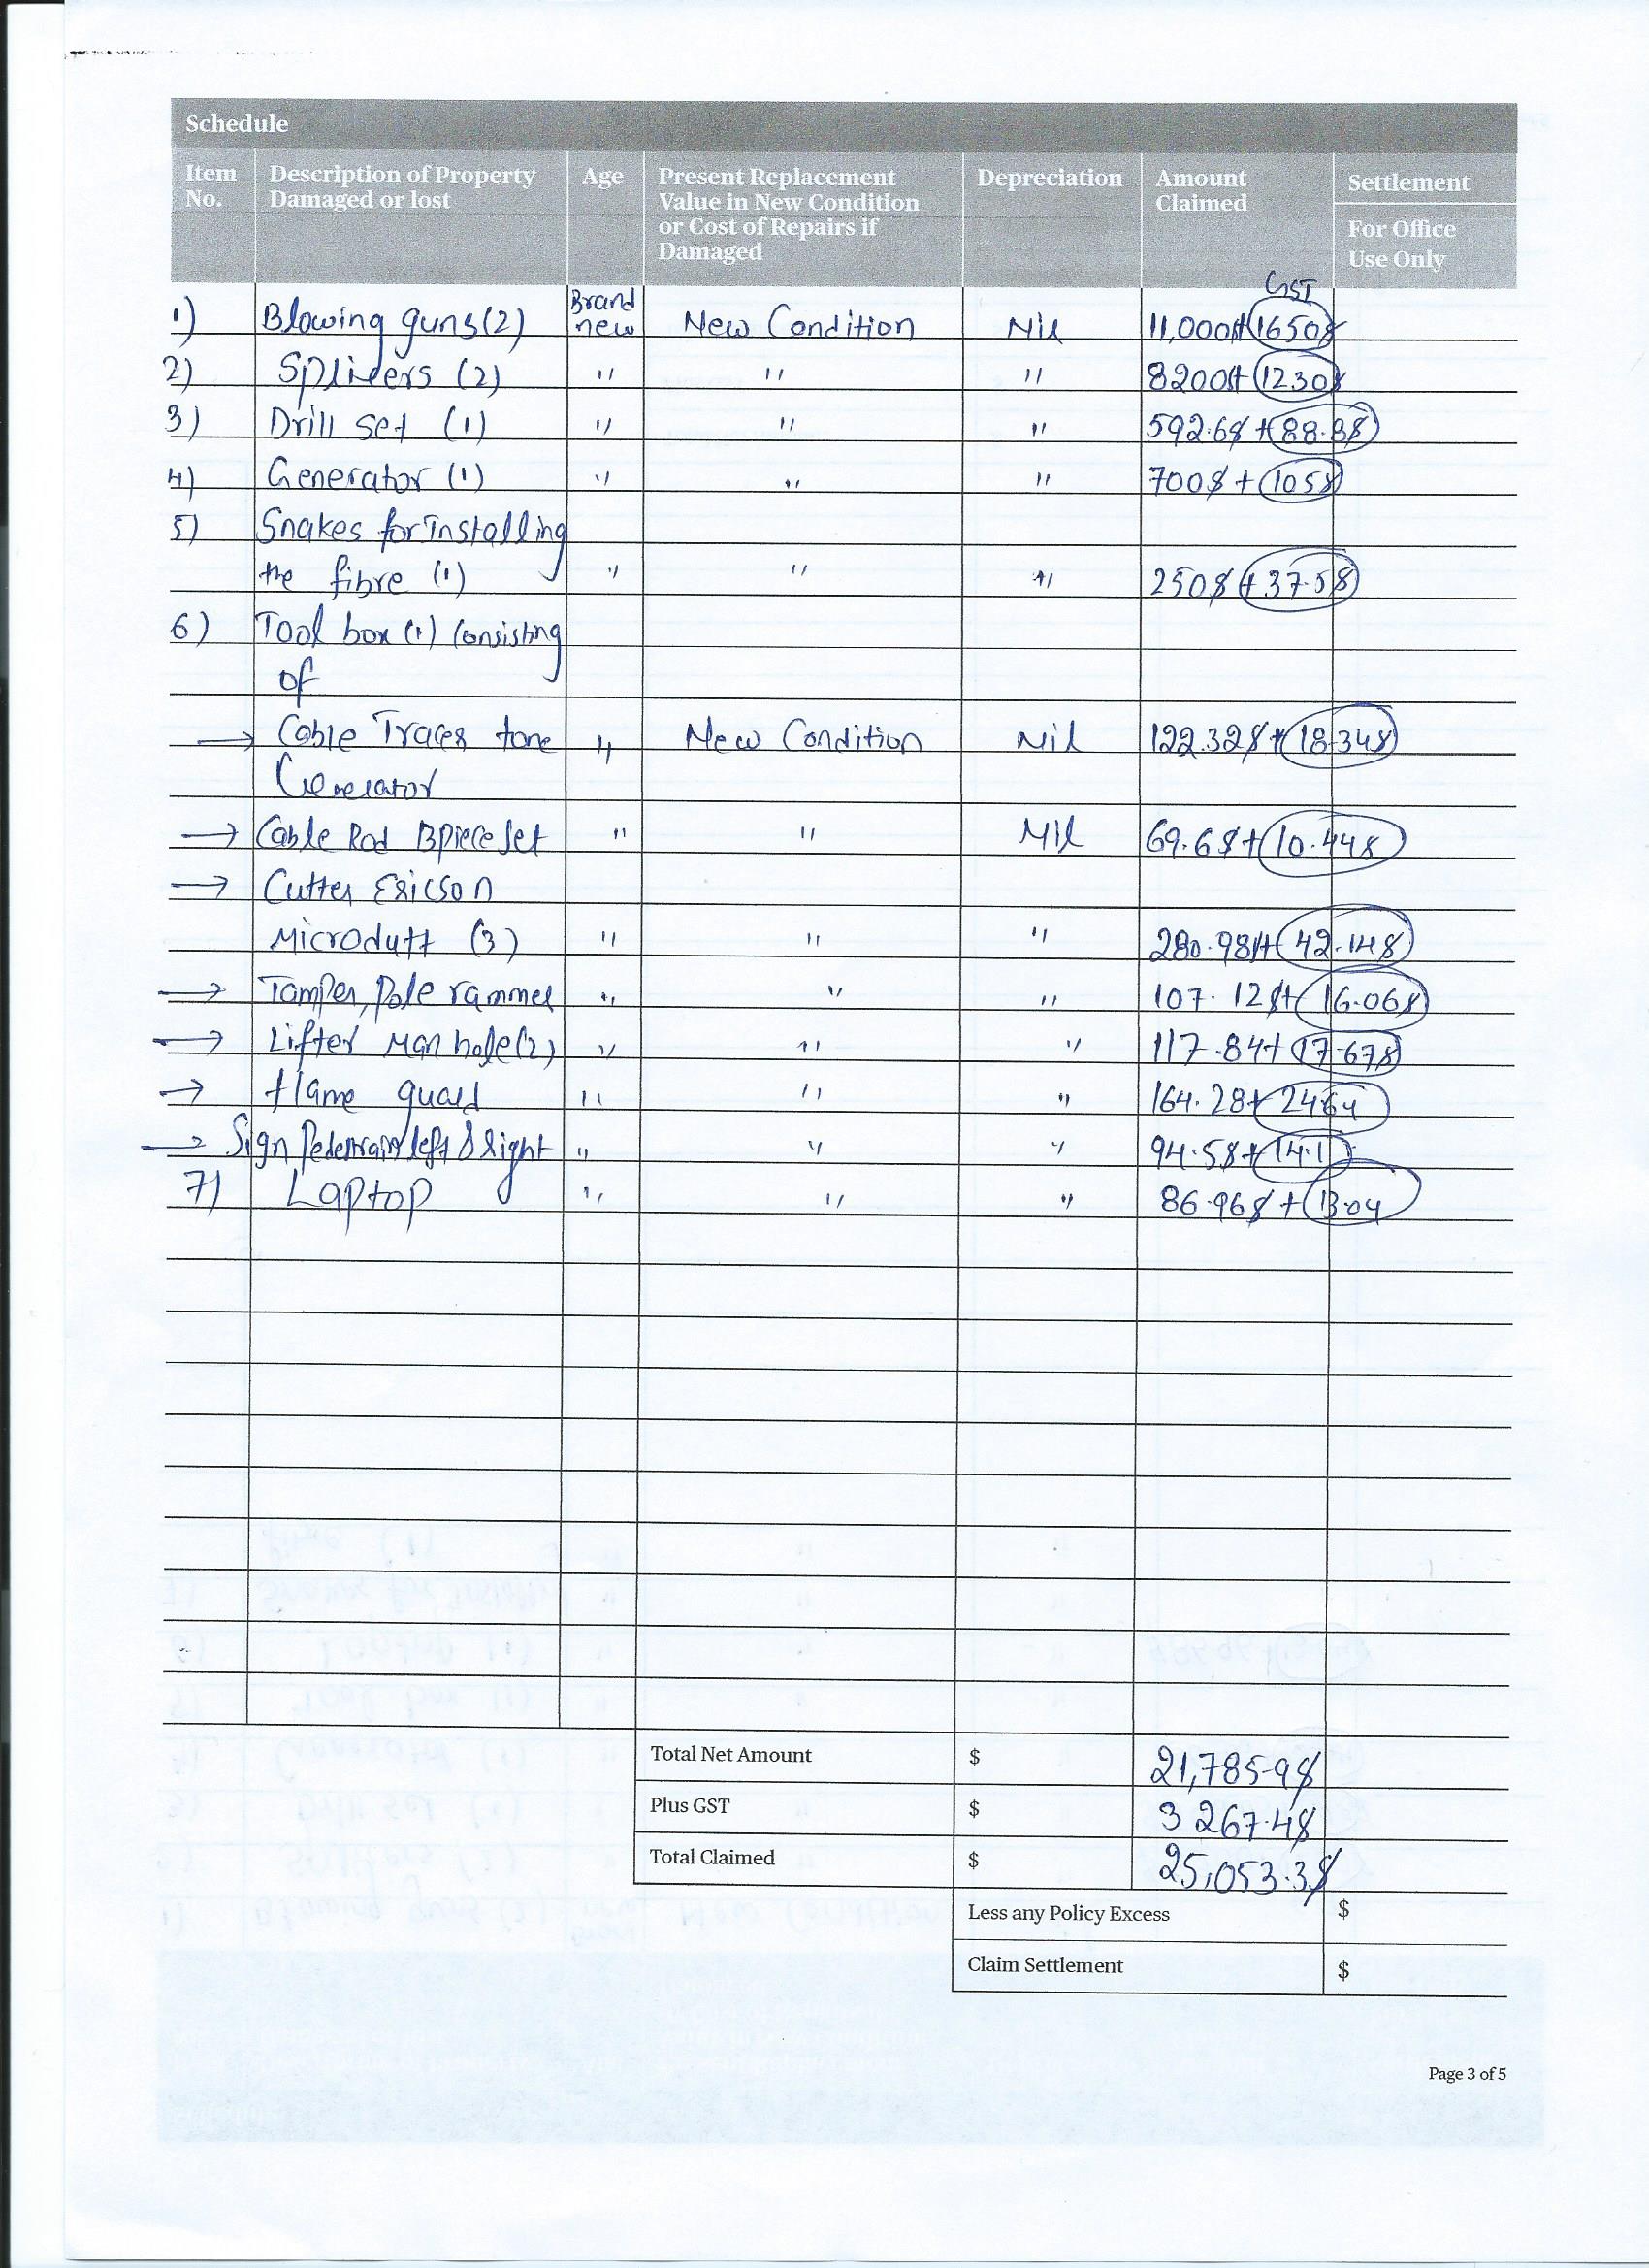 Schedule
Item No. Description of Property Damaged or lost Age Present Replacement Value in New Condition or Cost of Repairs if Damaged Depreciation Amount Claimed Settlement For Office Use Only
GST
1) Blowing guns(2) Brand new New Condition Nil 11,000$+1650$
2) (2) " " " 8200$+1230$
3) Drill set (1) " " " 592.6$+88.88$
4) Generator (1) " " " 700$+105$
5) Snakes for installing
the fibre (1) " " " 250$+37.5$
6) Tool box (1) Consisting
of
→ Cable Tracer tone " New Condition Nil 122.32$+18.34$
Generator
→ Cable Rod set " " Nil 69.6$+10.44$
→ Cutter Ericson
Microdutt (3) " " " 280.98$+42.14$
→ Tamper, Pole rammer " " " 107.12$+16.06$
→ Lifter Manhole(2) " " " 117.84+17.67$
→ flame guard " " " 164.28+24.64
→ Sign left & Right " " " 94.58+14.1
7) Laptop " " " 86.96$+13.04
Total Net Amount $ 21,785.9$
Plus GST $ 3267.4$
Total Claimed $ 25,053.3$
Less any Policy Excess $
Claim Settlement $
Page 3 of 5